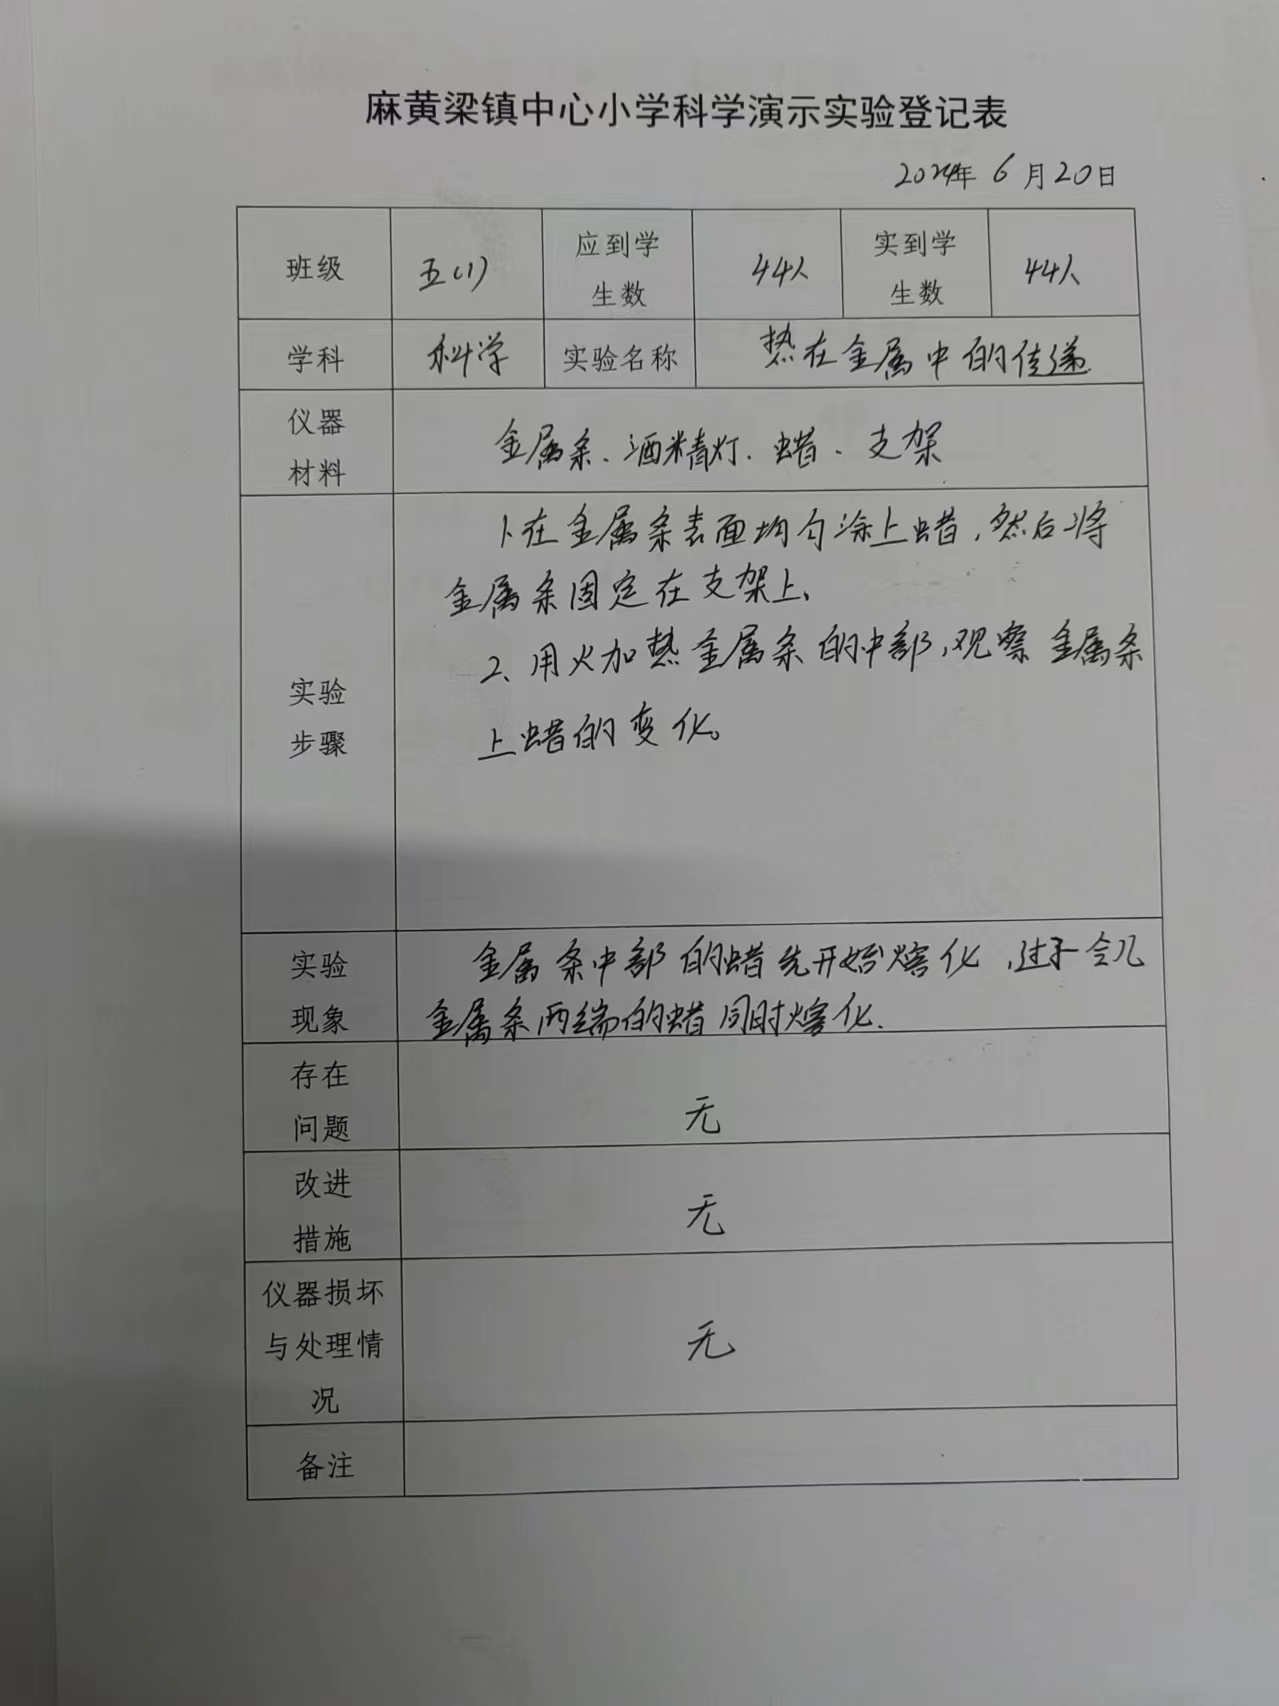 麻黄梁镇中心小学科学演示实验登记表
2024年 6 月 20日
班级 五(1) 应到学 44人 实到学 44人
生数 生数
学科 科学 实验名称 热在金属中的传递
仪器
材料 金属条、酒精灯、蜡、支架
1、在金属条表面均匀涂上蜡,然后将
金属条固定在支架上、
2、用火加热金属条的中部,观察金属条
实验
步骤 上蜡的变化。
实验 金属条中部的蜡先开始熔化,过于会儿
现象 金属条两端的蜡同时熔化.
存在
问题 无
改进
措施 无
仪器损坏
与处理情 无
况
备注